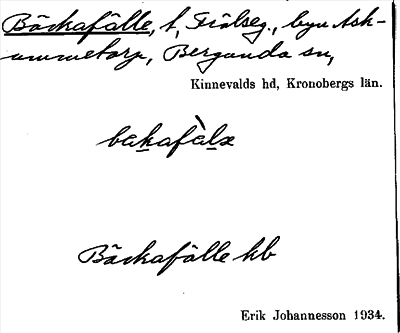 Bäckafälle, t, Frälseg., byn Ask-
ummetorp, Bergunda sn,
Kinnevalds hd, Kronobergs län.
bakafàlx
Bäckafälle kb
Erik Johannesson 1934.